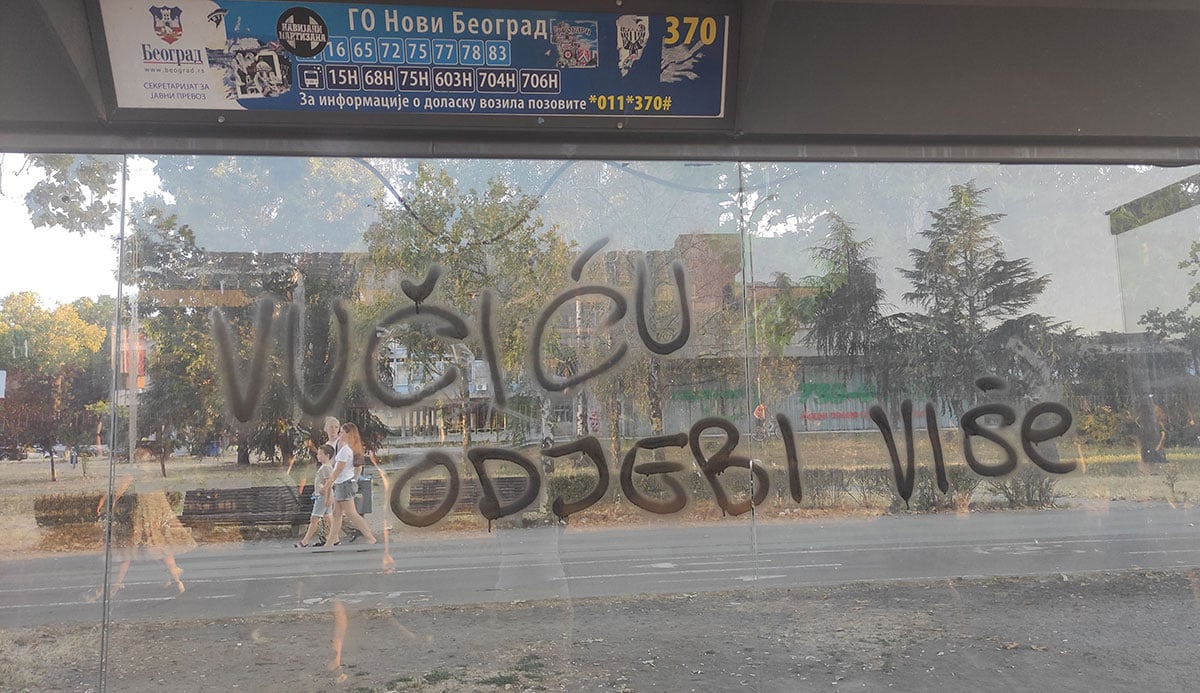 ГО Нови Београд
370
Београд
www.beograd.rs
СЕКРЕТАРИЈАТ ЗА
ЈАВНИ ПРЕВОЗ
НАВИЈАЧИ
ПАРТИЗАНА
16 65 72 75 77 78 83
15Н 68Н 75Н 603Н 704Н 706Н
За информације о доласку возила позовите *011*370#
VUČIĆU
ODJEBI VIŠE